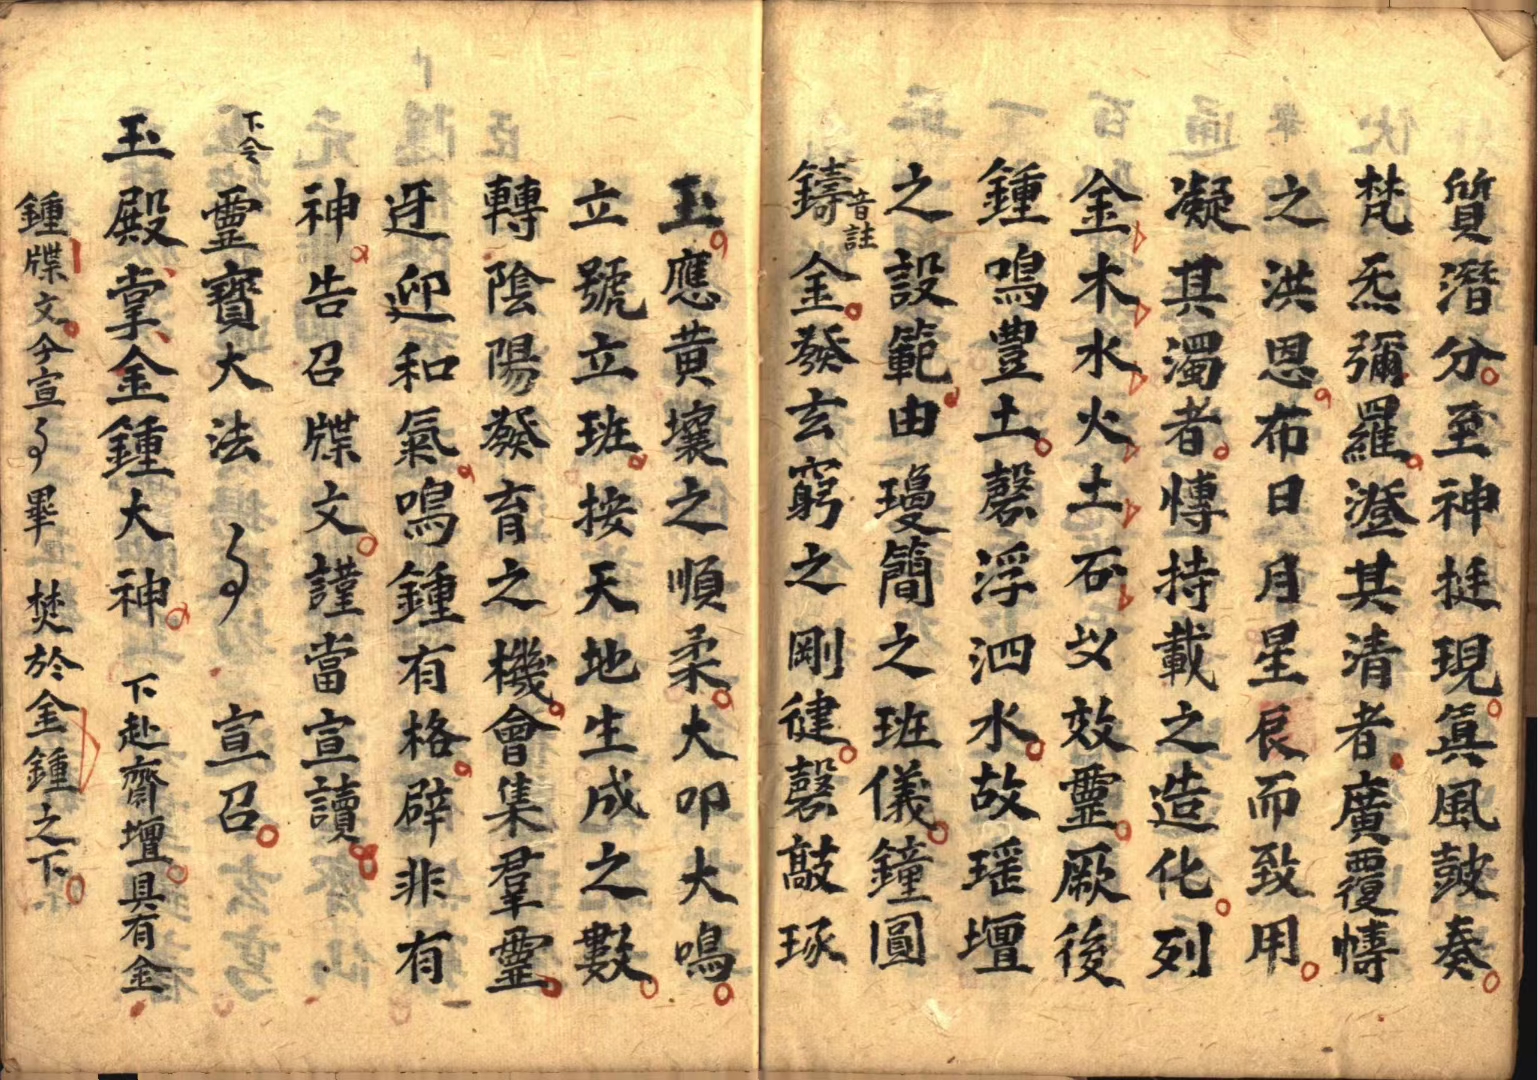 質潛分至神挺現真風皷奏
梵炁彌羅澄其清者廣覆幬
之洪恩布日月星辰而致用
凝其濁者慱持載之造化列
金木水火土石以效靈厥後
鍾鳴豊土磬浮泗水故瑶壇
之設範由瓊簡之班儀鐘圓
鑄音註金發玄窮之剛健磬敲琢
玉應黃壤之順柔大叩大鳴
立號立班按天地生成之數
轉陰陽發育之機會集羣霊
迓迎和氣鳴鍾有格辟非有
神告召牒文謹當宣讀
下令
霊寶大法 宣召
玉殿掌金鍾大神 下赴齋壇具有金
鍾牒文今宣 畢 焚於金鍾之下